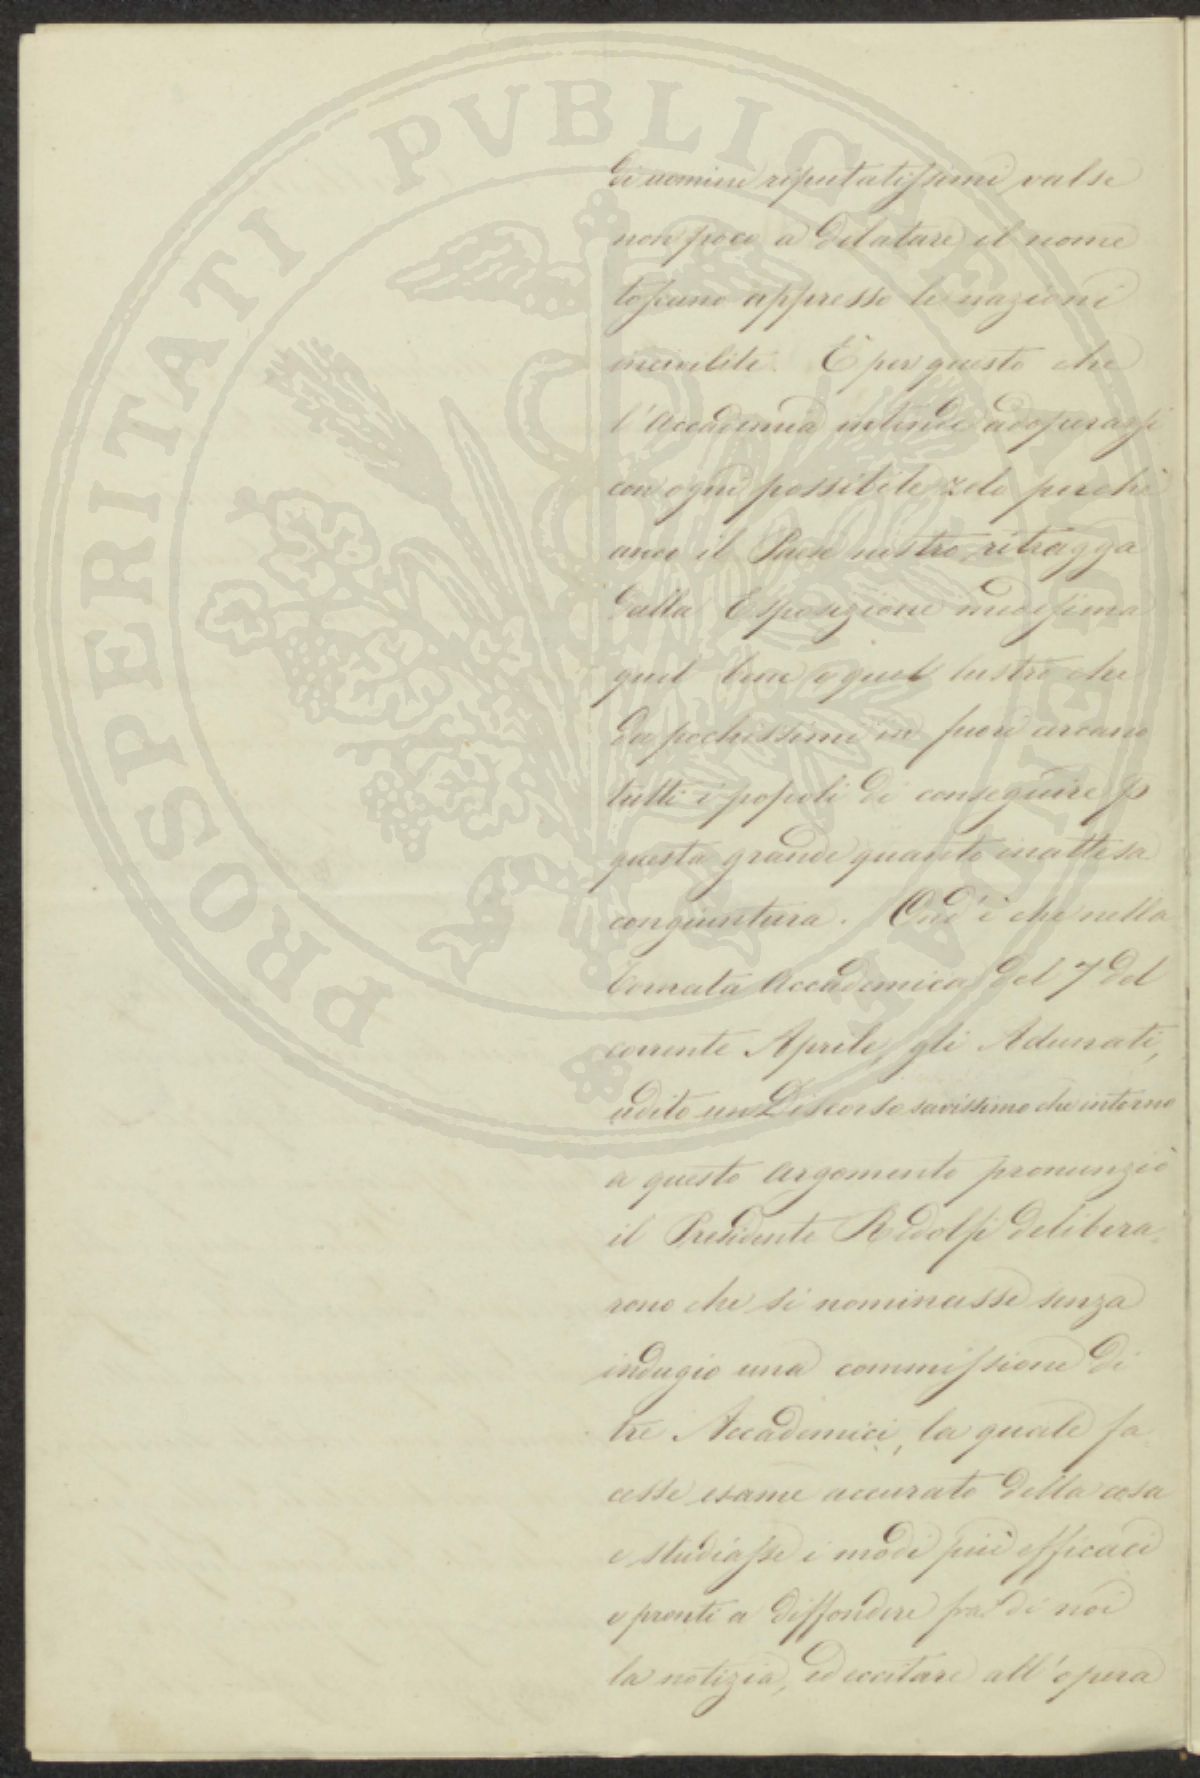 di uomini riputatissimi valse
non poco a dilatare il nome
toscano appresso le nazioni
incivilite. È per questo che
l'Accademia intende adoperarsi
con ogni possibile zelo perchè
anco il Paese nostro ritragga
dalla Esposizione medesima
quel bene e quel lustro che
da pochissimi in fuori cercano
tutti i popoli di conseguire p
questa grande quanto inattesa
congiuntura. Ond'è che nella
Tornata Accademica del 7 del
corrente Aprile, gli Adunati,
udito un Discorso savissimo che intorno
a questo argomento pronunziò
il Presidente Ridolfi delibera-
rono che si nominasse senza
indugio una commissione di
tre Accademici, la quale fa
cesse esame accurato della cosa
e studiasse i modi più efficaci
e pronti a diffondere fra di noi
la notizia, ed eccitare all'opera
PROSPERITATI PVBLICAE